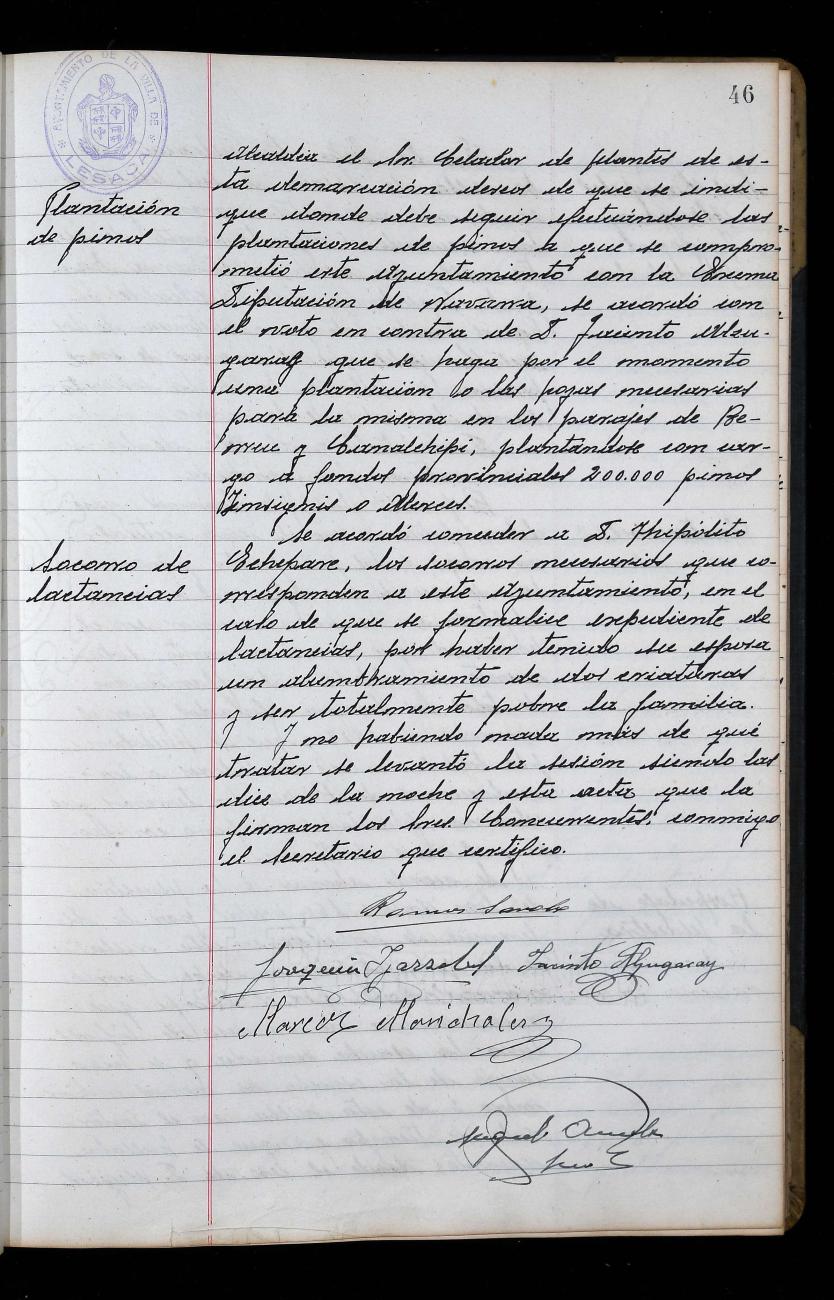 46
AYUNTAMIENTO DE LA VILLA DE
LESACA
Plantación
de pinos
Alcaldia el Sr. Celador de plantíos de es-
ta demarcación deseos de que se indi-
que donde debe seguir efectuándose las
plantaciones de pinos a que se compro-
metió este Ayuntamiento con la Excma
Diputación de Navarra, se acordó con
el voto en contra de D. Jacinto Alzu-
garay que se haga por el momento
una plantación o las pozas necesarias
para la misma en los parajes de Be-
rrue y Canalchipi, plantándose con car-
go a fondos provinciales 200.000 pinos
insignis o alerces.
Socorro de
lactancias
Se acordó conceder a D. Hipólito
Echepare, los socorros necesarios que co-
rresponden a este Ayuntamiento, en el
caso de que se formalice expediente de
lactancias, por haber tenido su esposa
un alumbramiento de dos criaturas
y ser totalmente pobre la familia.
Y no habiendo nada más de qué
tratar se levantó la sesión siendo las
diez de la noche y esta acta que la
firman los Sres. Concurrentes, conmigo
el Secretario que certifico.
Ramon
Joaquin Jacinto Alzugaray
Marcos Marichalar
Miguel